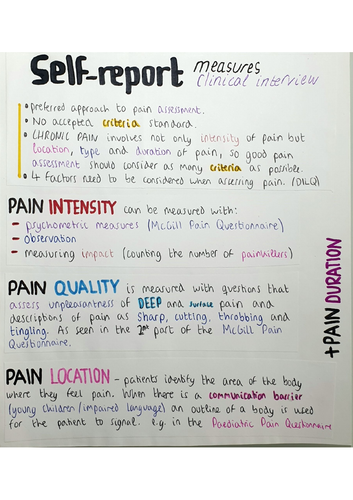 Self-report measures
clinical interview
• preferred approach to pain assessment.
• No accepted criteria standard.
• CHRONIC PAIN involves not only intensity of pain but
location, type and duration of pain, so good pain
assessment should consider as many criteria as possible.
• 4 factors need to be considered when assessing pain. (DILQ)
PAIN INTENSITY can be measured with:
- psychometric measures (McGill Pain Questionnaire)
- observation
- measuring impact (counting the number of painkillers)
PAIN QUALITY is measured with questions that
assess unpleasantness of DEEP and surface pain and
descriptions of pain as sharp, cutting, throbbing and
tingling. As seen in the 2nd part of the McGill Pain
Questionnaire.
+ PAIN DURATION
PAIN LOCATION - patients identify the area of the body
where they feel pain. When there is a communication barrier
(young children/impaired language) an outline of a body is used
for the patient to signal. e.g. in the Paediatric Pain Questionnaire